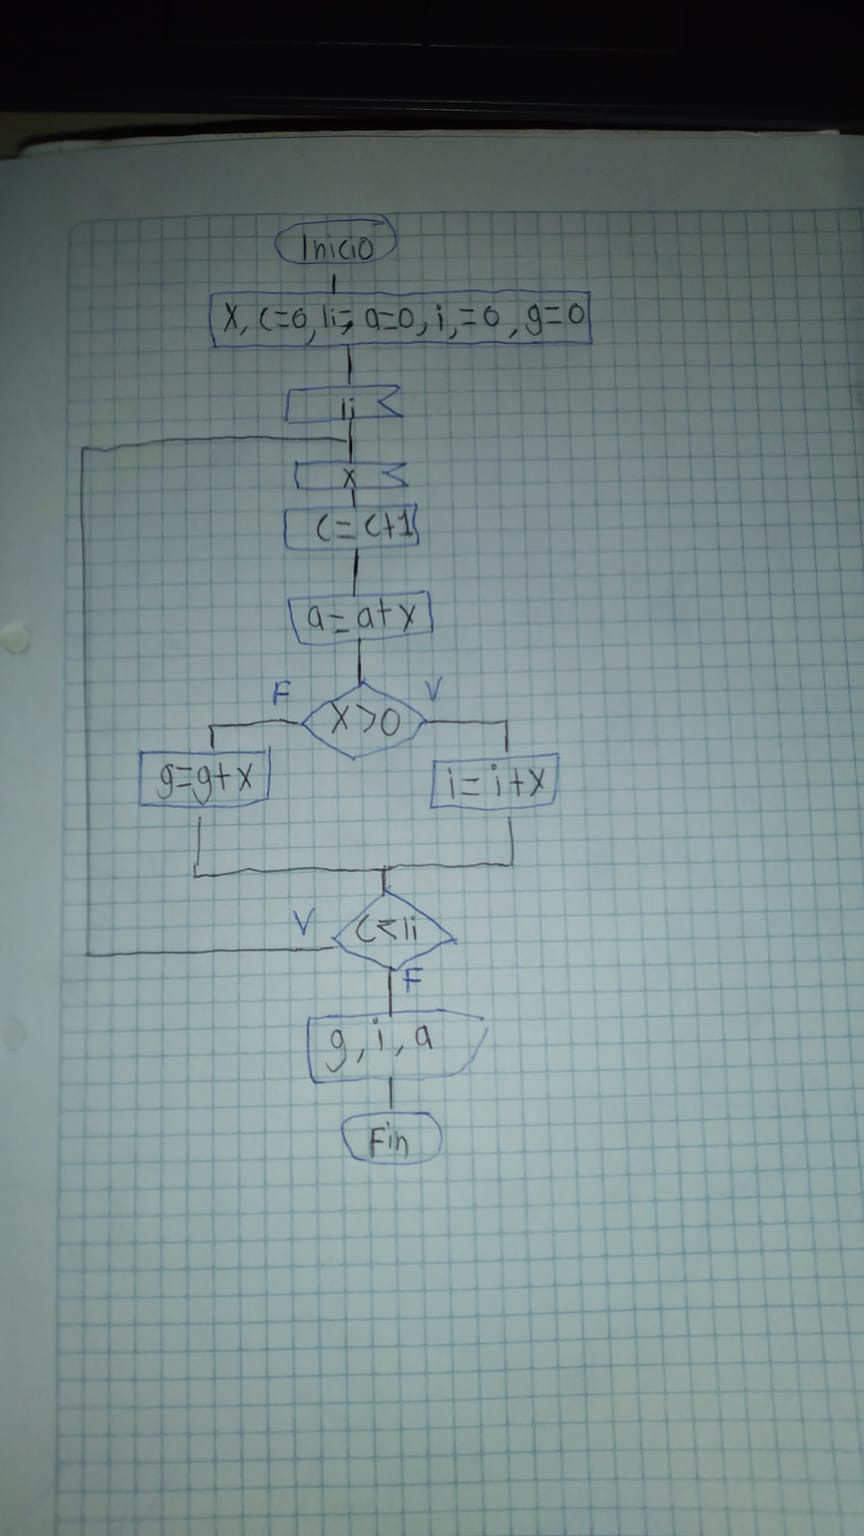 Inicio
x, c=0, li=, a=0, i,=0, g=0
li
x
c=c+1
a=a+x
F V
x>0
g=g+x i=i+x
V c<li
F
g, i, a
Fin